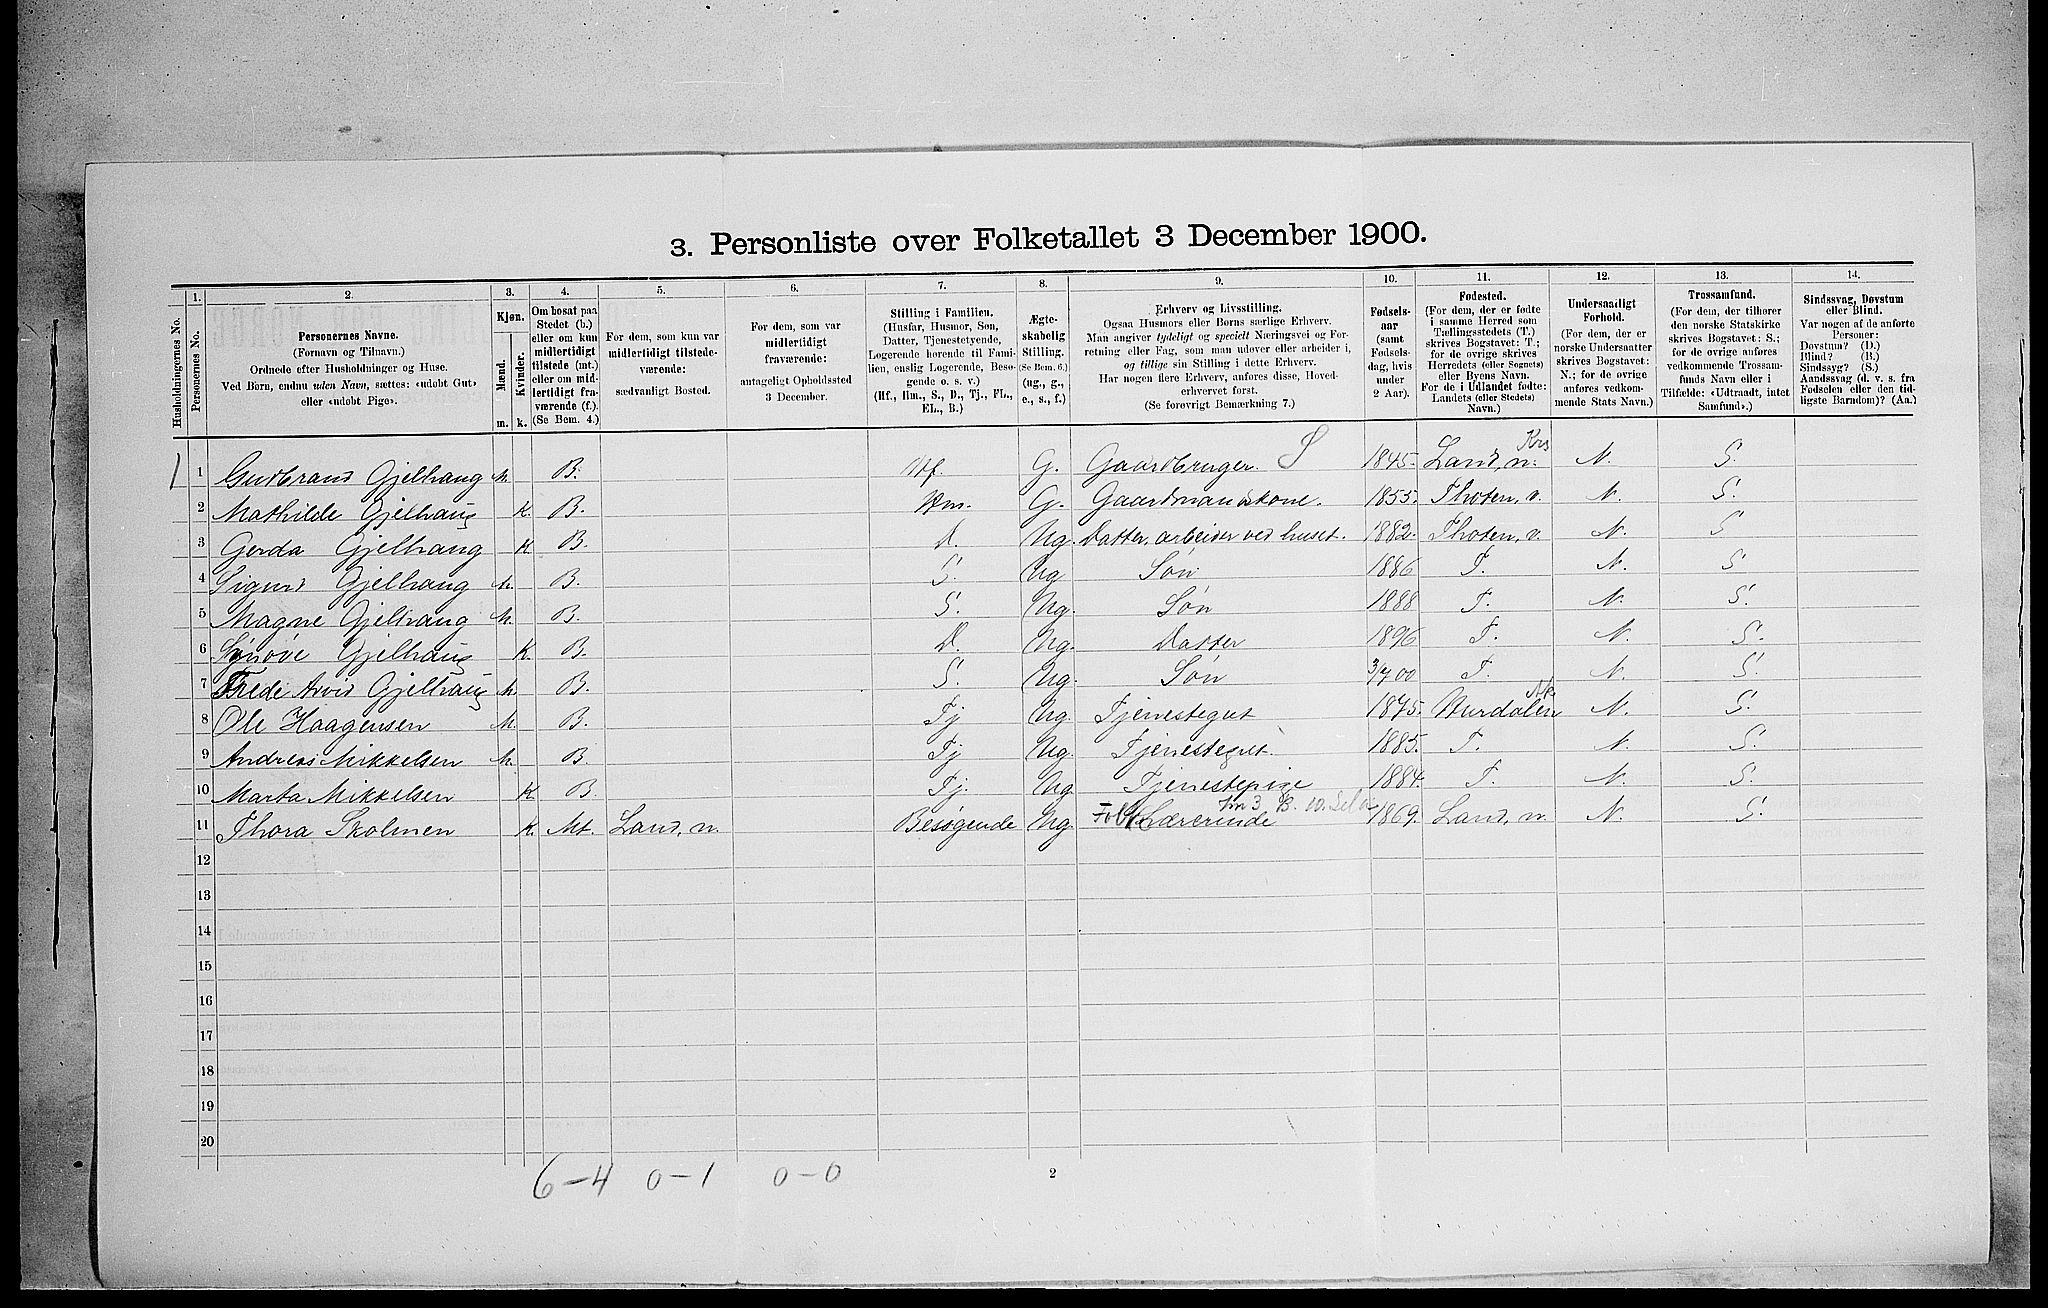 3. Personliste over Folketallet 3 December 1900.
Husholdningernes No.
1. Personernes No.
2. Personernes Navne.
(Fornavn og Tilnavn.)
Ordnede efter Husholdninger og Huse.
Ved Børn, endnu uden Navn, sættes: «udøbt Gut»
eller «udøbt Pige».
3. Kjøn.
Mænd. m.
Kvinder. k.
4. Om bosat paa
Stedet (b.)
eller om kun
midlertidigt
tilstede (mt.)
eller om mid-
lertidigt fra-
værende (f.)
(Se Bem. 4.)
5. For dem, som kun var
midlertidigt tilstede-
værende:
sædvanligt Bosted.
6. For dem, som var
midlertidigt
fraværende:
antageligt Opholdssted
3 December.
7. Stilling i Familien.
(Husfar, Husmor, Søn,
Datter, Tjenestetyende,
Logerende hørende til Fami-
lien, enslig Logerende, Besø-
gende o. s. v.)
(Hf., Hm., S., D., Tj., FL.,
EL., B.)
8. Ægte-
skabelig
Stilling.
(Se Bem. 6.)
(ug., g.,
e., s., f.)
9. Erhverv og Livsstilling.
Ogsaa Husmors eller Børns særlige Erhverv.
Man angiver tydeligt og specielt Næringsvei og For-
retning eller Fag, som man udøver eller arbeider i,
og tillige sin Stilling i dette Erhverv.
Har nogen flere Erhverv, anføres disse, Hoved-
erhvervet først.
(Se forøvrigt Bemærkning 7.)
10. Fødsels-
aar
(samt
Fødsels-
dag, hvis
under
2 Aar).
11. Fødested.
(For dem, der er fødte
i samme Herred som
Tællingsstedets (T.)
skrives Bogstavet: T.;
for de øvrige skrives
Herredets (eller Sognets)
eller Byens Navn.
For de i Udlandet fødte:
Landets (eller Stedets)
Navn.)
12. Undersaatligt
Forhold.
(For dem, der er
norske Undersaatter
skrives Bogstavet:
N.; for de øvrige
anføres vedkom-
mende Stats Navn.)
13. Trossamfund.
(For dem, der tilhører
den norske Statskirke
skrives Bogstavet: S.;
for de øvrige anføres
vedkommende Trossam-
funds Navn eller i
Tilfælde: «Udtraadt, intet
Samfund».)
14. Sindssvag, Døvstum
eller Blind.
Var nogen af de anførte
Personer:
Døvstum? (D.)
Blind? (B.)
Sindssyg? (S.)
Aandssvag (d. v. s. fra
Fødselen eller den tid-
ligste Barndom)? (Aa.)
1 1 Gudbrand Gjelhaug M. B. Hf. G. Gaardbruger. S 1845. Land, n. Krs N. S.
2 Mathilde Gjelhaug K. B. Hm. G. Gaardmandskone. 1855. Thoten, v. N. S.
3 Gerda Gjelhaug K B. D. Ug. Datter, arbeider ved huset. 1882. Thoten, v. N. S
4 Sigurd Gjelhaug M. B. S. Ug Søn 1886 T. N. S
5 Magne Gjelhaug M. B. S. Ug. Søn 1888 T. N. S.
6 Synøve Gjelhaug K. B. D. Ug. Datter 1896 T. N. S.
7 Frede Arvid Gjelhaug M. B. S. Ug. Søn 3/7 00 T. N. S.
8 Ole Haagensen M. B. Tj Ug. Tjenestegut 1875. Hurdalen Ak. N. S.
9 Andreas Mikkelsen M. B. Tj Ug. Tjenestegut. 1885. T. N. S.
10 Marta Mikkelsen K B. Tj. Ug Tjenestepige 1884. T. N. S.
11 Thora Skolmen K. Mt. Land, n. Besøgende Ug. Lærerinde 1869. Land, n. N. S.
12
13
14
15
16
17
18
19
20
6-4 0-1 0-0
2